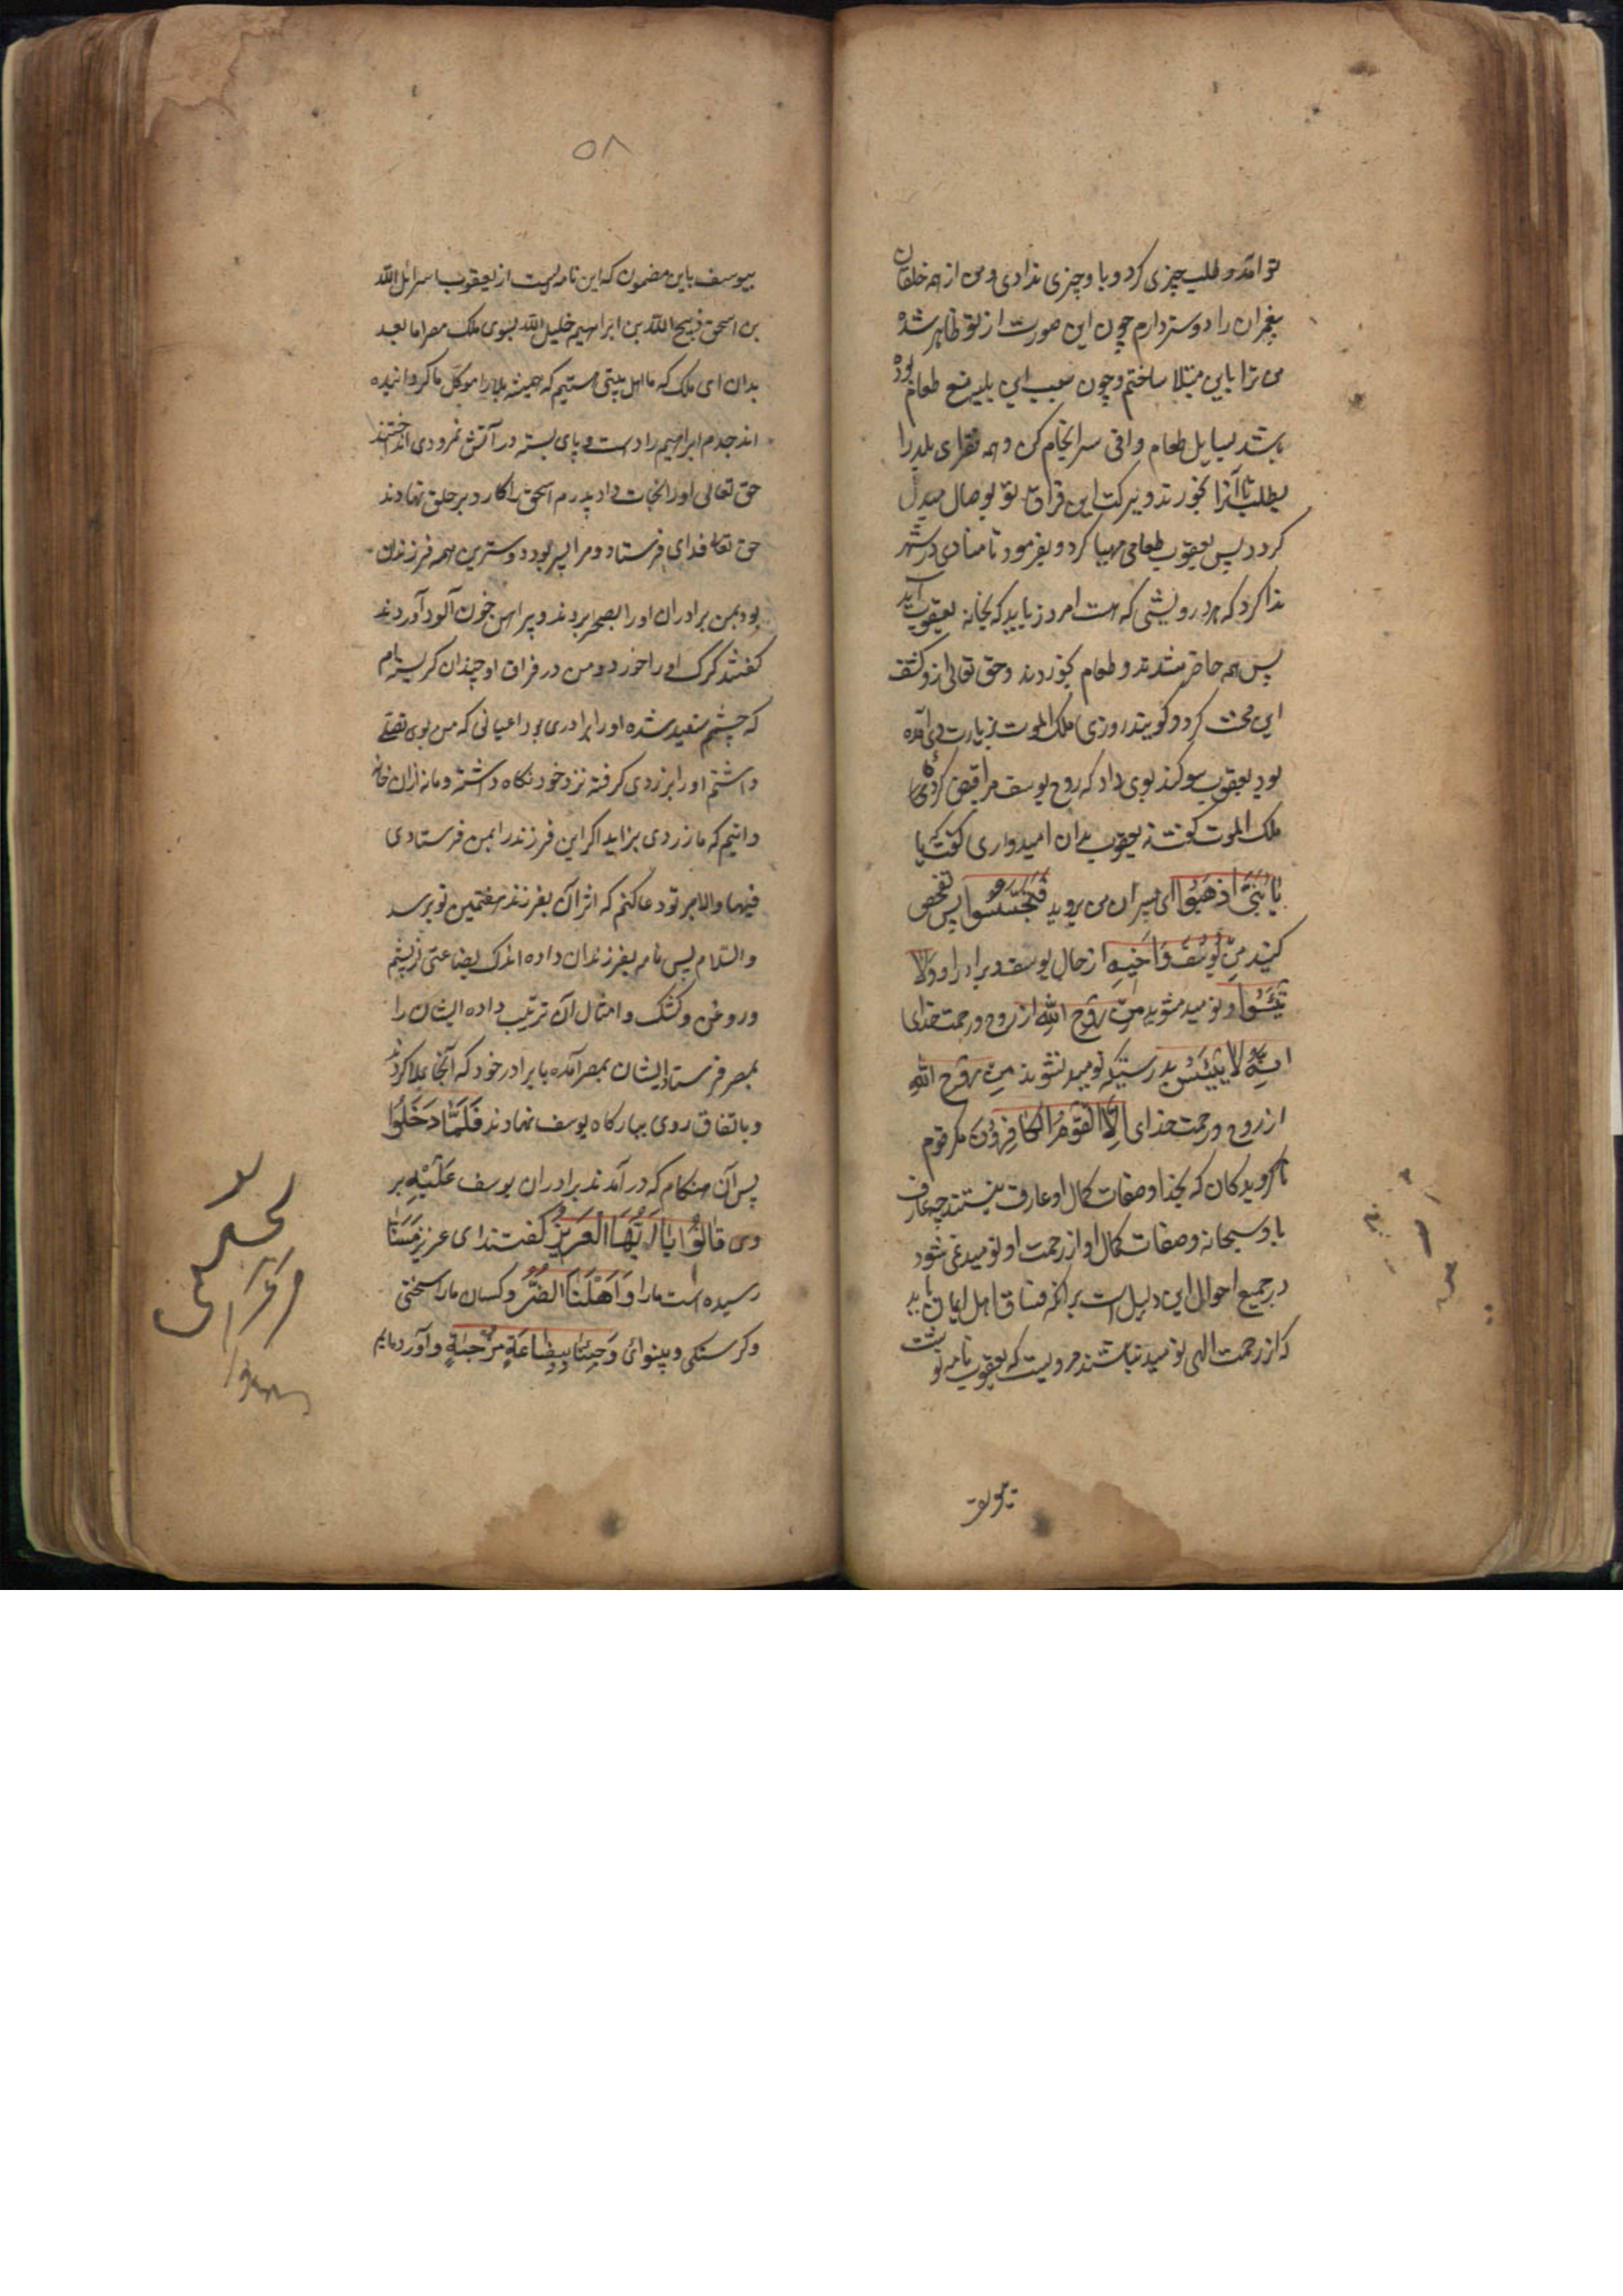 تو آمد و طلب چیزی کرد و با و چیزی ندادی و من از همه خلقان
پیغمبران را دوستر دارم چون این صورت از تو ظاهر شده
من ترا باین مبتلا ساختم و چون سبب این بلیه منع طعام بود
بسایل طعام وافی سرانجام کن و همه فقرای بلد را
بطلب تا آنرا بخورند و ببرکت این فراق تو بوصال مبدل
کردد پس یعقوب طعامی مهیا کرد و بفرمود تا منادی در شهر
ندا کرد که هر درویشی که هست امروز باید که بخانه یعقوب آید
پس همه حاضر شدند و طعام بخوردند و حق تعالی ازو کشف
این محنت کرد و کویند روزی ملک الموت بزیارت وی آمده
بود یعقوب سوکند بوی داد که روح یوسف مرا قبض کرده
ملک الموت کفت نه یعقوب بدان امیدواری کفت که یا
یَا بَنِیَّ اذْهَبُوا ای پسران من بروید فَتَحَسَّسُوا پس تفحص
کنید مِنْ یُوسُفَ وَاَخِیهِ از حال یوسف و برادر او وَلَا
تَیْئَسُوا و نومید مشوید مِنْ رَوْحِ اللّٰهِ از روح و رحمت خدای
اِنَّهُ لَا یَیْئَسُ بدرستیکه نومید نشوند مِنْ رَوْحِ اللّٰهِ
از روح و رحمت خدای اِلَّا الْقَوْمُ الْکَافِرُونَ مکر قوم
ناکرویدکان که بخدا و صفات کمال او عارف نیستند چه عارف
باو سبحانه و صفات کمال او از رحمت او نومید نمی شود
در جمیع احوال این دلیل است بر آنکه فساق اهل ایمان باید
که از رحمت الهی نومید نباشند مرویست که یعقوب نامه نوشت
بیوسف
۵۸
بیوسف باین مضمون که این نامه ایست از یعقوب اسرائیل الله
بن اسحق ذبیح الله بن ابراهیم خلیل الله بسوی ملک مصر اما بعد
بدان ای ملک که ما اهل بیتی هستیم که همیشه بلا را موکل ما کردانیده
اند جدم ابراهیم را دست و پای بسته در آتش نمرودی انداختند
حق تعالی او را نجات داد پدرم اسحق را کارد بر حلق نهادند
حق تعالی فدای فرستاد و مرا پسری بود دوسترین همه فرزندان
بود بمن برادران او را بصحرا بردند و پیراهن خون آلود آوردند
کفتند کرک او را خورد و من در فراق او چندان کریسته ام
که چشمم سفید شده او را برادری بود اعیانی که من بوی تسلی
داشتم او را بدزدی کرفته نزد خود نکاه داشته و ما نه ازان خانه
دانیم که ما را دزدی بزاید اکر این فرزند را بمن فرستادی
فبها والا بر تو دعا کنم که اثر آن بفرزند هفتمین تو برسد
والسلام پس نامه بفرزندان داده اندک بضاعتی از پشم
و روغن و کشک و امثال آن ترتیب داده ایشان را
بمصر فرستاد ایشان بمصر آمده با برادر خود که آنجا بود ملاقات کردند
و باتفاق روی ببارکاه یوسف نهادند فَلَمَّا دَخَلُوا
پس آن هنکام که در آمدند برادران یوسف عَلَیْهِ بر
وی قَالُوا یَا اَیُّهَا الْعَزِیزُ کفتند ای عزیز مَسَّنَا
رسیده است ما را وَاَهْلَنَا الضُّرُّ و کسان ما را سختی
و کرسنکی و بینوائی وَجِئْنَا بِبِضَاعَةٍ مُزْجَاةٍ و آورده ایم